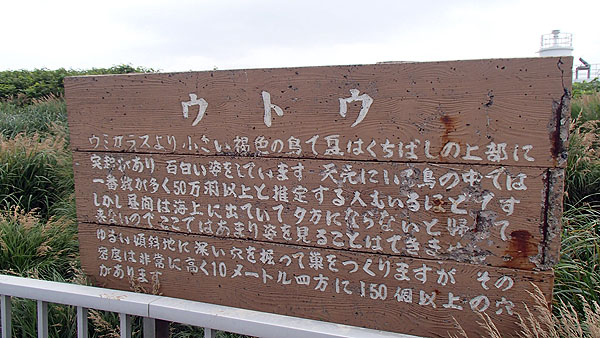 ウトウ
ウミガラスより小さい褐色の鳥で夏はくちばしの上部に
突起があり 面白い姿をしています 天売にいる鳥の中では
一番数が多く50万羽以上と推定する人もいるほどです
しかし昼間は海上に出ていて夕方にならないと帰って
来ないのでここではあまり姿を見ることはできません
ゆるい傾斜地に深い穴を掘って巣をつくりますが その
密度は非常に高く10メートル四方に150個以上の穴
があります